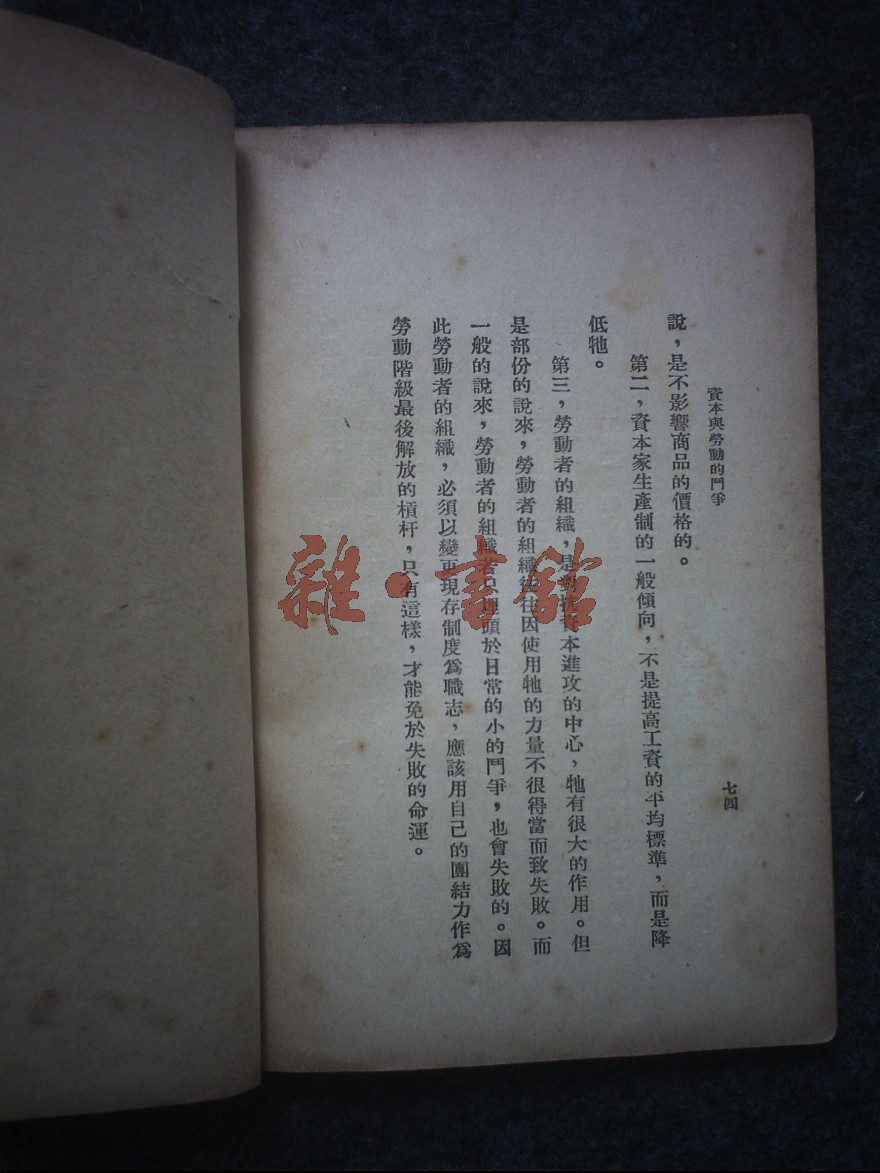 資本與勞動的鬥爭
七四
說，是不影響商品的價格的。
第二，資本家生產制的一般傾向，不是提高工資的平均標準，而是降
低牠。
第三，勞動者的組織，是對抗資本進攻的中心，牠有很大的作用。但
是部份的說來，勞動者的組織往往因使用牠的力量不很得當而致失敗。而
一般的說來，勞動者的組織者只埋頭於日常的小的鬥爭，也會失敗的。因
此勞動者的組織，必須以變更現存制度爲職志，應該用自己的團結力作爲
勞動階級最後解放的槓杆，只有這樣，才能免於失敗的命運。
雜·書館